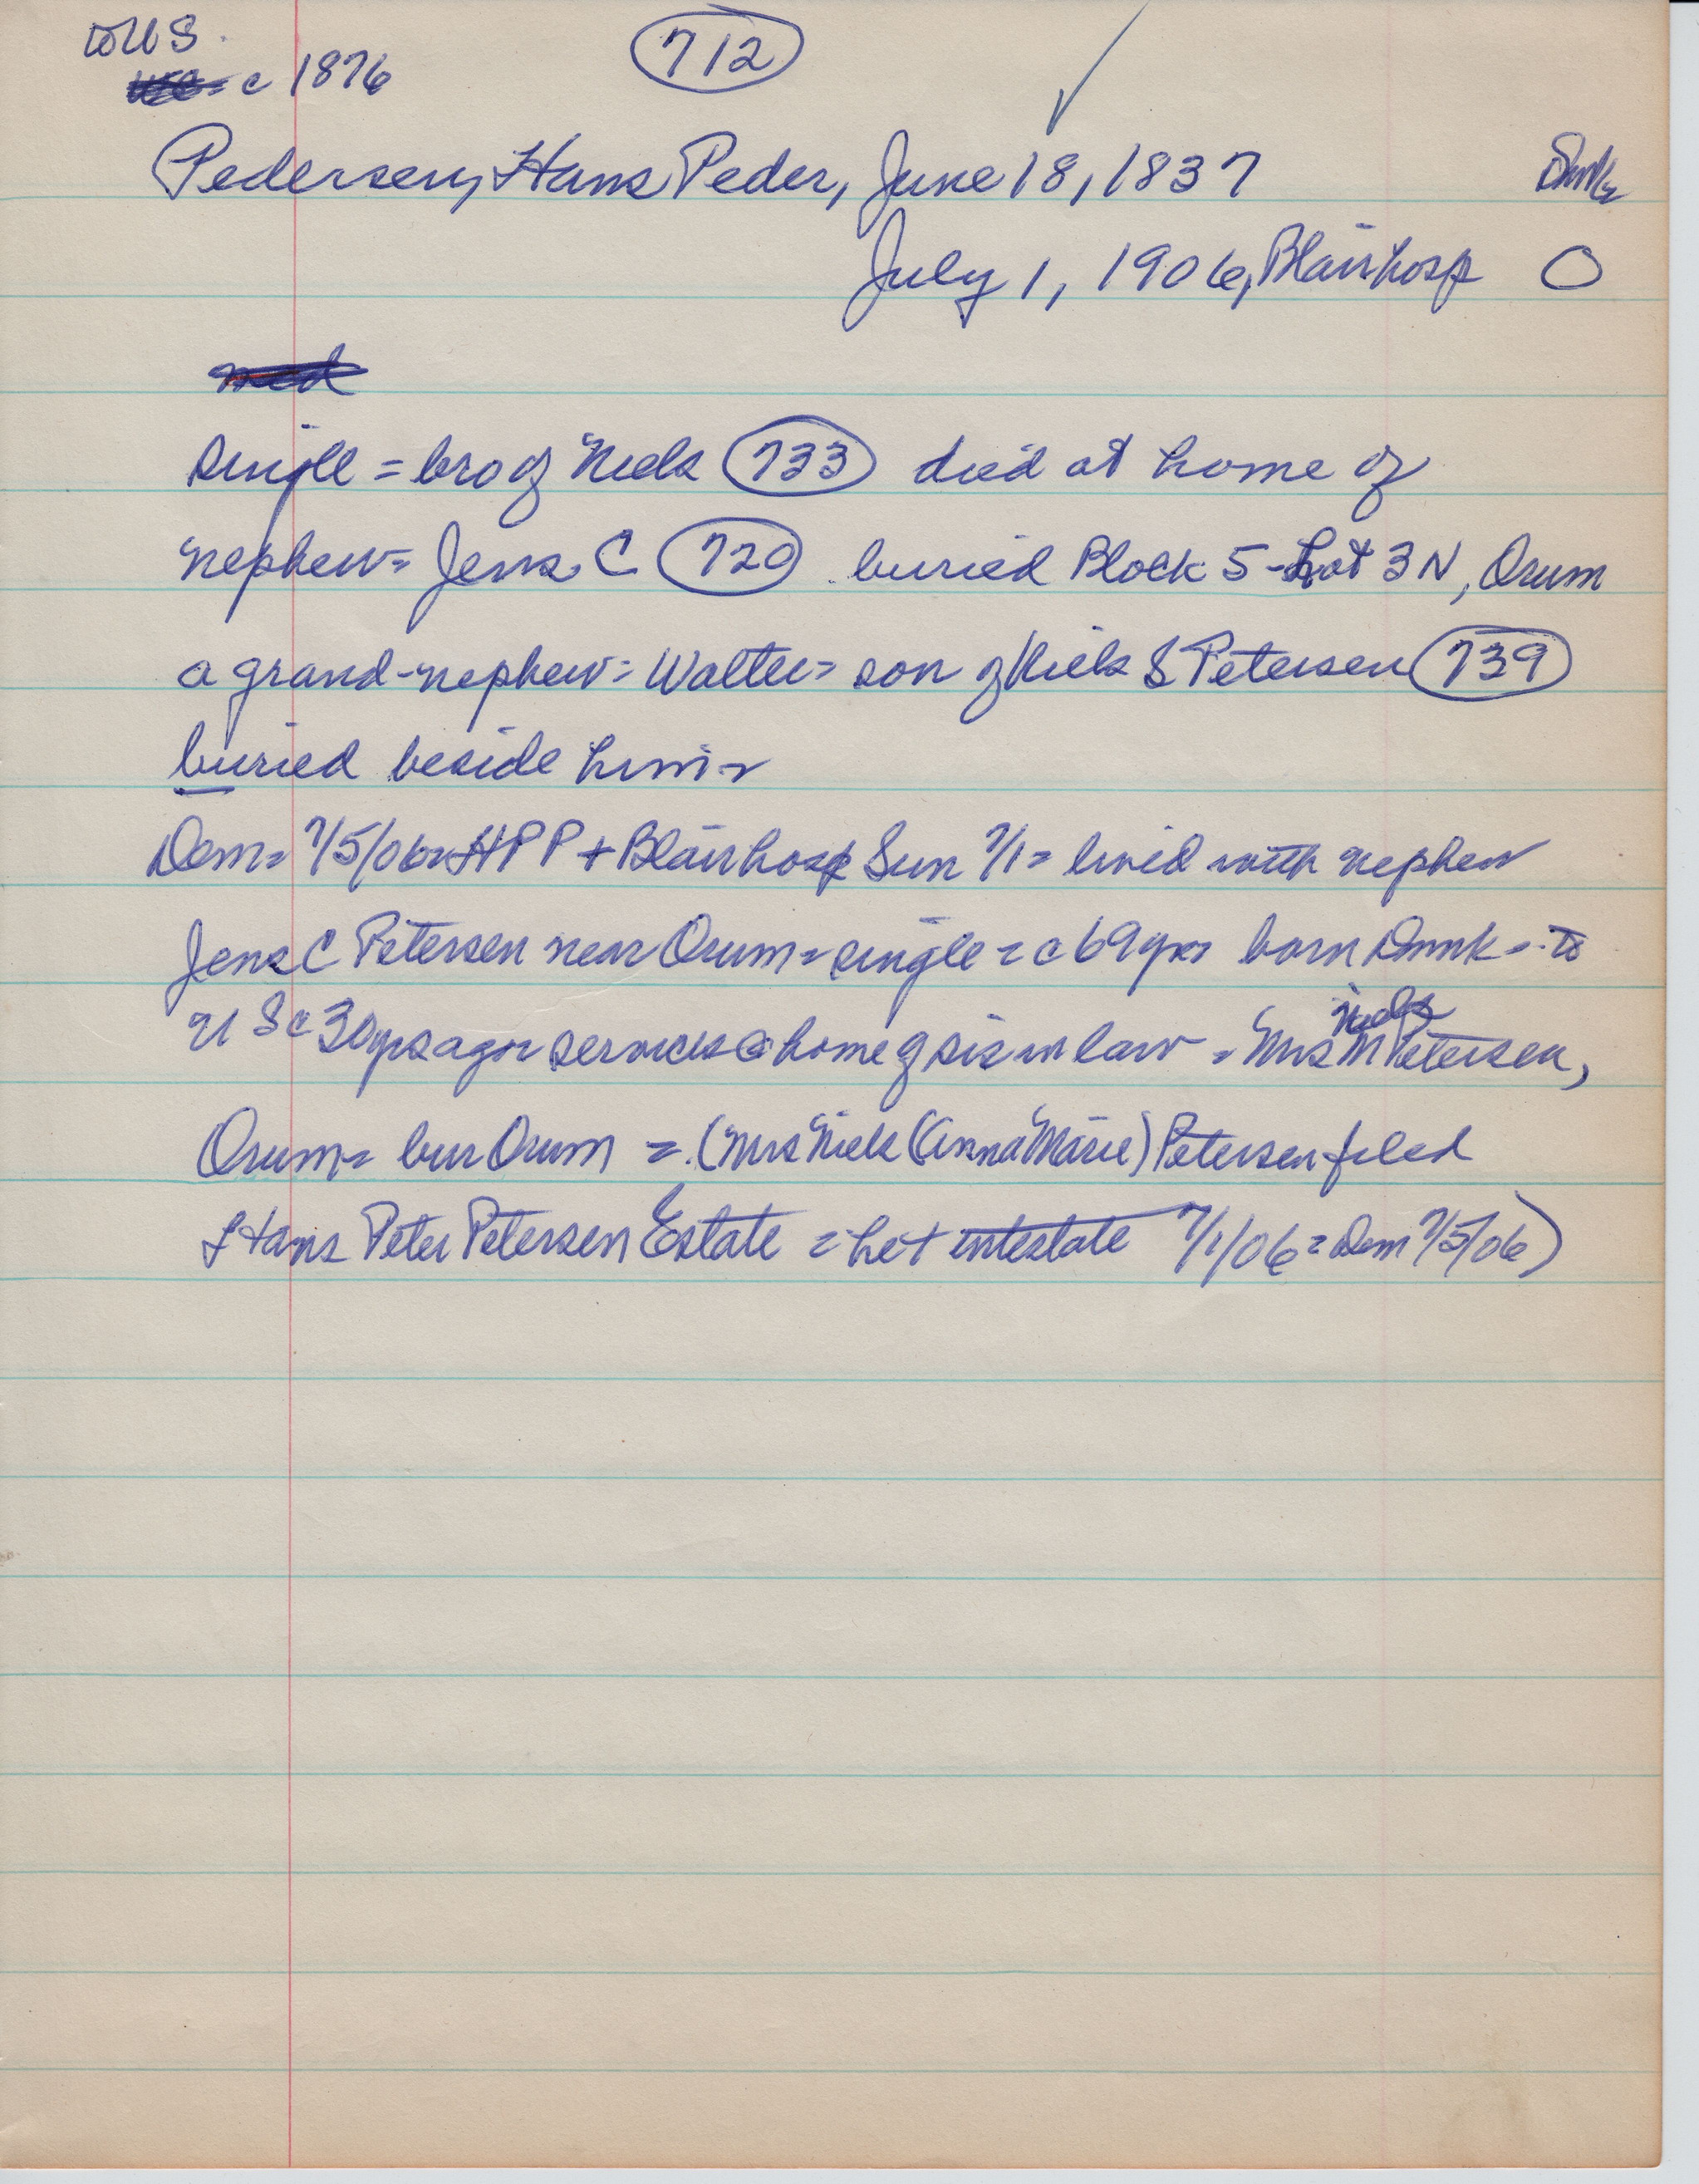 to U S
c 1876
712
Pedersen, Hans Peder, June 18, 1837
July 1, 1906, Blair hosp O
med
single = bro of Niels 733 died at home of
nephew = Jens C 720 buried Block 5 - Lot 3 N, Orum
a grand-nephew = Walter = son of Niels S Petersen 739
buried beside him =
Dem = 7/5/06 = HPP + Blair hosp Sun 7/1 = lived with nephew
Jens C Petersen near Orum = single = c 69 yrs born Dnmk = to
U S c 30 yrs ago = services @ home of sis in law = Mrs Niels M Petersen,
Orum = bur Orum = (Mrs Niels (Anna Marie) Petersen filed
Hans Peter Petersen Estate = he + intestate 7/1/06 = Dem 7/5/06)